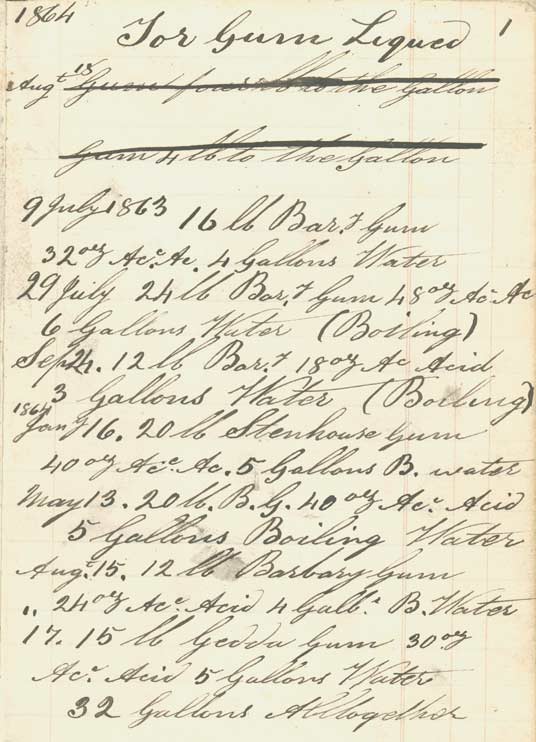 1864
For Gum Liqued 1
Augt 18 Gum four lb to the Gallon
Gum 4 lb to the Gallon
9 July 1863 16 lb Bary Gum
32 oz Acc. Ac. 4 Gallons Water
29 July 24 lb Bary Gum 48 oz Ac. Ac
6 Gallons Water (Boiling)
Sep 24. 12 lb Bary 18 oz Ac Acid
3 Gallons Water (Boiling)
1864
Jany 16. 20 lb Stenhouse Gum
40 oz Acc. Ac. 5 Gallons B. water
May 13. 20 lb. B. G. 40 oz Acc. Acid
5 Gallons Boiling Water
Augt. 15. 12 lb Barbary Gum
„ 24 oz Acc. Acid 4 Gall B. Water
17. 15 lb Gedda Gum 30 oz
Acc. Acid 5 Gallons Water
32 Gallons Alltogether